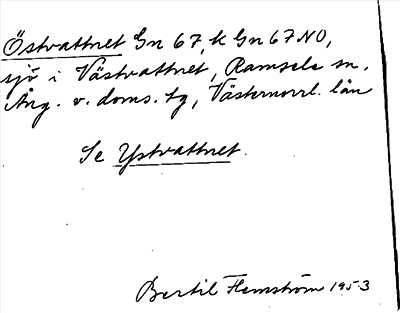 Östvattnet Gn 67, k Gn 67 NO,
sjö i Västvattnet, Ramsele sn.
Ång. v. doms. tg, Västernorrl. län
Se Ystvattnet.
Bertil Flemström 1953